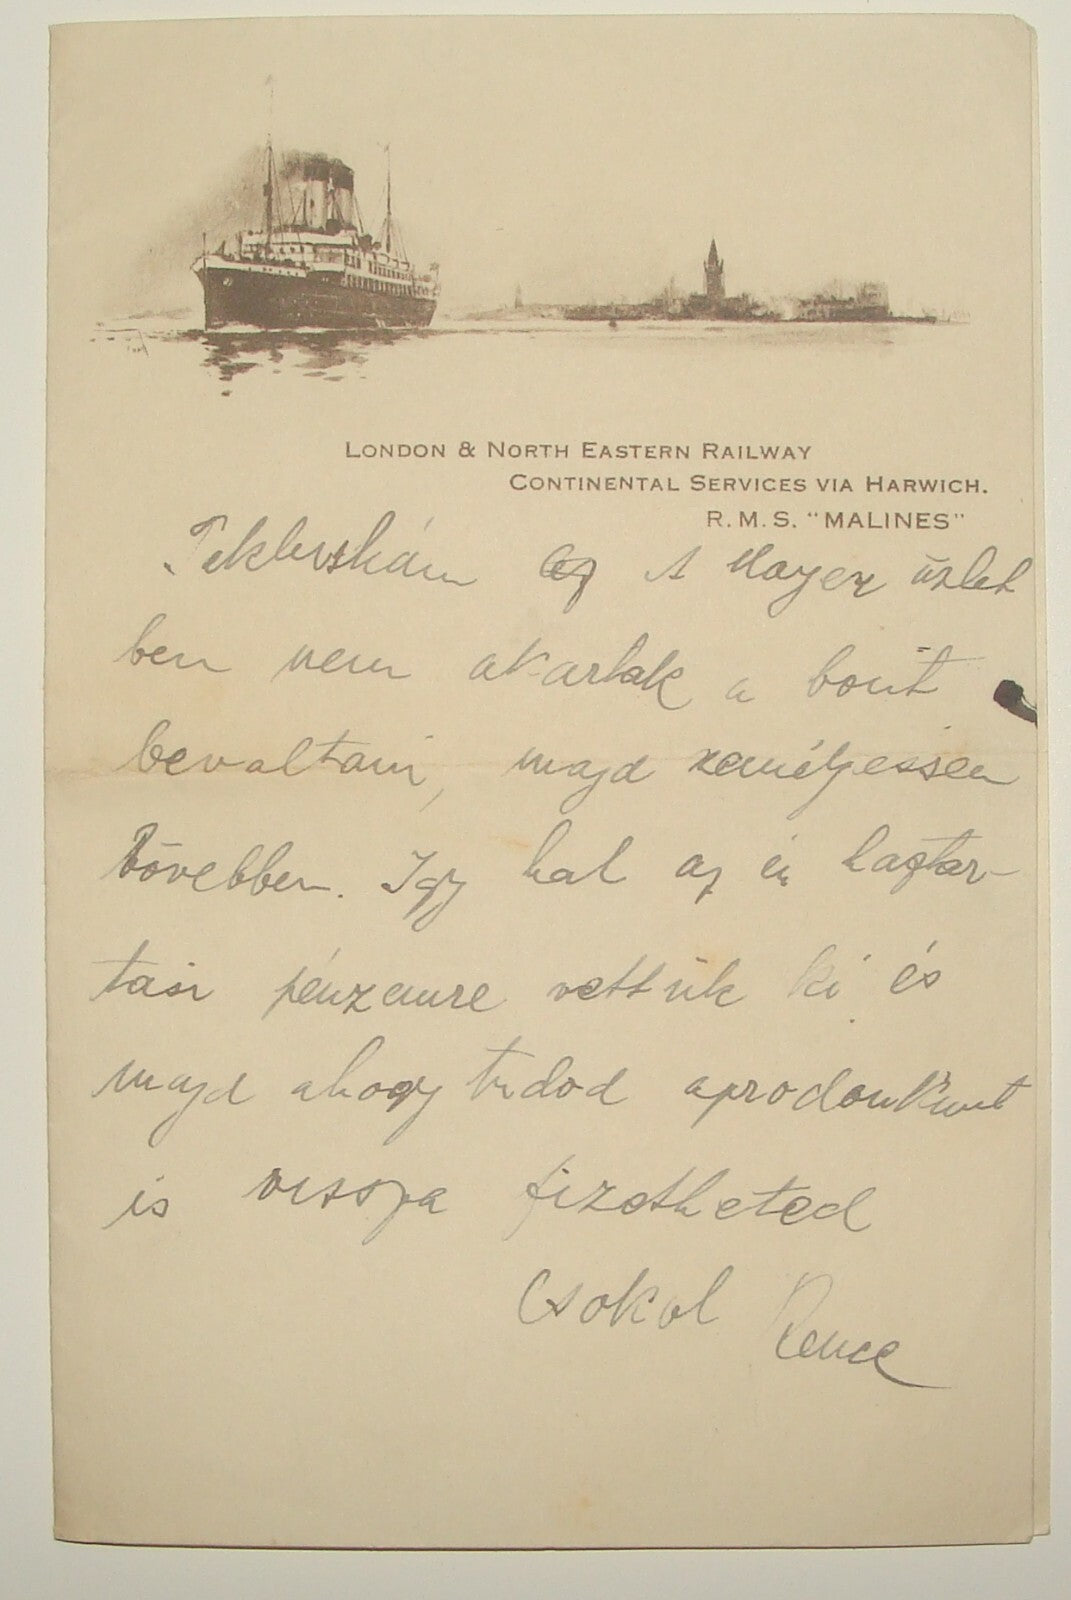 LONDON & NORTH EASTERN RAILWAY
CONTINENTAL SERVICES VIA HARWICH.
R.M.S. "MALINES"
A Mayer üzlet
ben nem akartak a bont
bevaltani, majd zemélyessen
Bövebben. Igy hat az én haztar-
tasi pénzemre vettük ki és
majd ahogy tudod aprodonkint
is vissza fizetheted
Csokol Rence